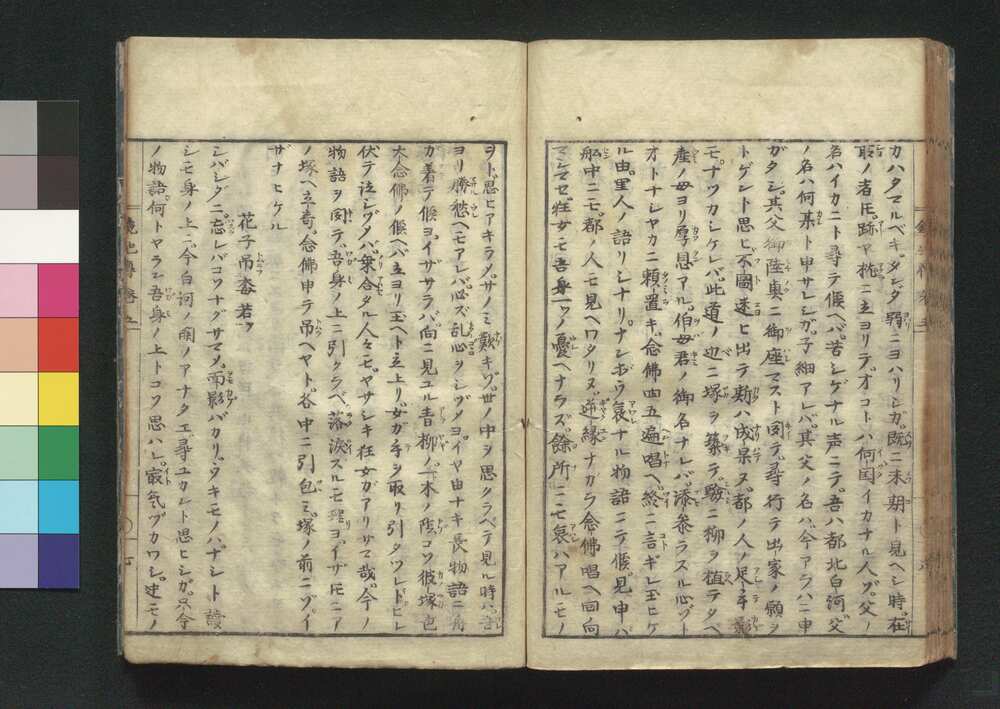 カハクマルベキダンダ弱ニヨハリシガ。既ニ末期ト見ヘシ時。在
所ノ者𪜈。跡ヤ枕ニ立ヨリテ。オコトハ何国イカナル人ゾ。父ノ
名ハイカニト尋テ候ヘバ。苦シゲナル声ニテ。吾ハ都北白河。父
ノ名ハ何某ト申サレシガ。子細アレバ。其父ノ名ハ。今アラハニ申
ガタシ。其父御陸奥ニ御座マスト聞テ。尋行テ出家ノ願ヲ
トゲント思ヒ。不圖迷ヒ出テ斯ハ成果ヌ。都ノ人ノ足手影
モ。ナツカシケレバ。此道ノ辺ニ塚ヲ築テ。驗ニ柳ヲ植テタベ
産ノ母ヨリ厚恩アル。伯母君ノ御名ナレバ。添参ラスル心ゾト
オトナシヤカニ頼置キ。念佛四五遍唱ヘ。終ニ言ギレ玉ヒケ
ル由。里人ノ語リシナリ。ナンボウ哀ナル物語ニテ候。見申バ
舩中ニモ。都ノ人モ見ヘワタリヌ。逆縁ナガラ念佛唱ヘ回向
マシマセ。狂女モ吾身一ツノ憂ヘナラズ。餘所ニモ哀ハアルモノ
ヲト。思ヒアキラメ。サノミ歎キゾ。世ノ中ヲ思クラベテ見ル時ハ。吾
ヨリ勝愁ヘモアレバ。必ズ乱心ヲシヅメヨ。イヤ由ナキ長物語ニ舟
カ着テ候ヨ。イザサラバ。向ニ見ユル青柳ノ。一木ノ陰コソ彼塚也
大念佛ノ候ヘバ。立ヨリ玉ヘト立上リ。女ガ手ヲ取リ引タツレドヒレ
伏テ泣シヅメバ。乗合タル人々モ。ヤサシキ狂女ガアリサマ哉。今ノ
物語ヲ聞テ。吾身ノ上ニ引クラベ。落涙スルモ理ヨ。イザ𪜈ニア
ノ塚ヘ立寄。念佛申テ吊ヘヤト。各中ニ引包ミ。塚ノ前ニゾ。イ
ザナヒケル
花子吊梅若ヲ
シバシダニ。忘レバコソナグサマメ。面影バカリ。ダキモノハ。ナシト讀
シモ身ノ上ニ。今白河ノ関ノアナタエ尋ユカレト思ヒシガ。只今
ノ物語。何トヤラン吾身ノ上トコソ思ハレ。最気ヅカワシ。述モノ